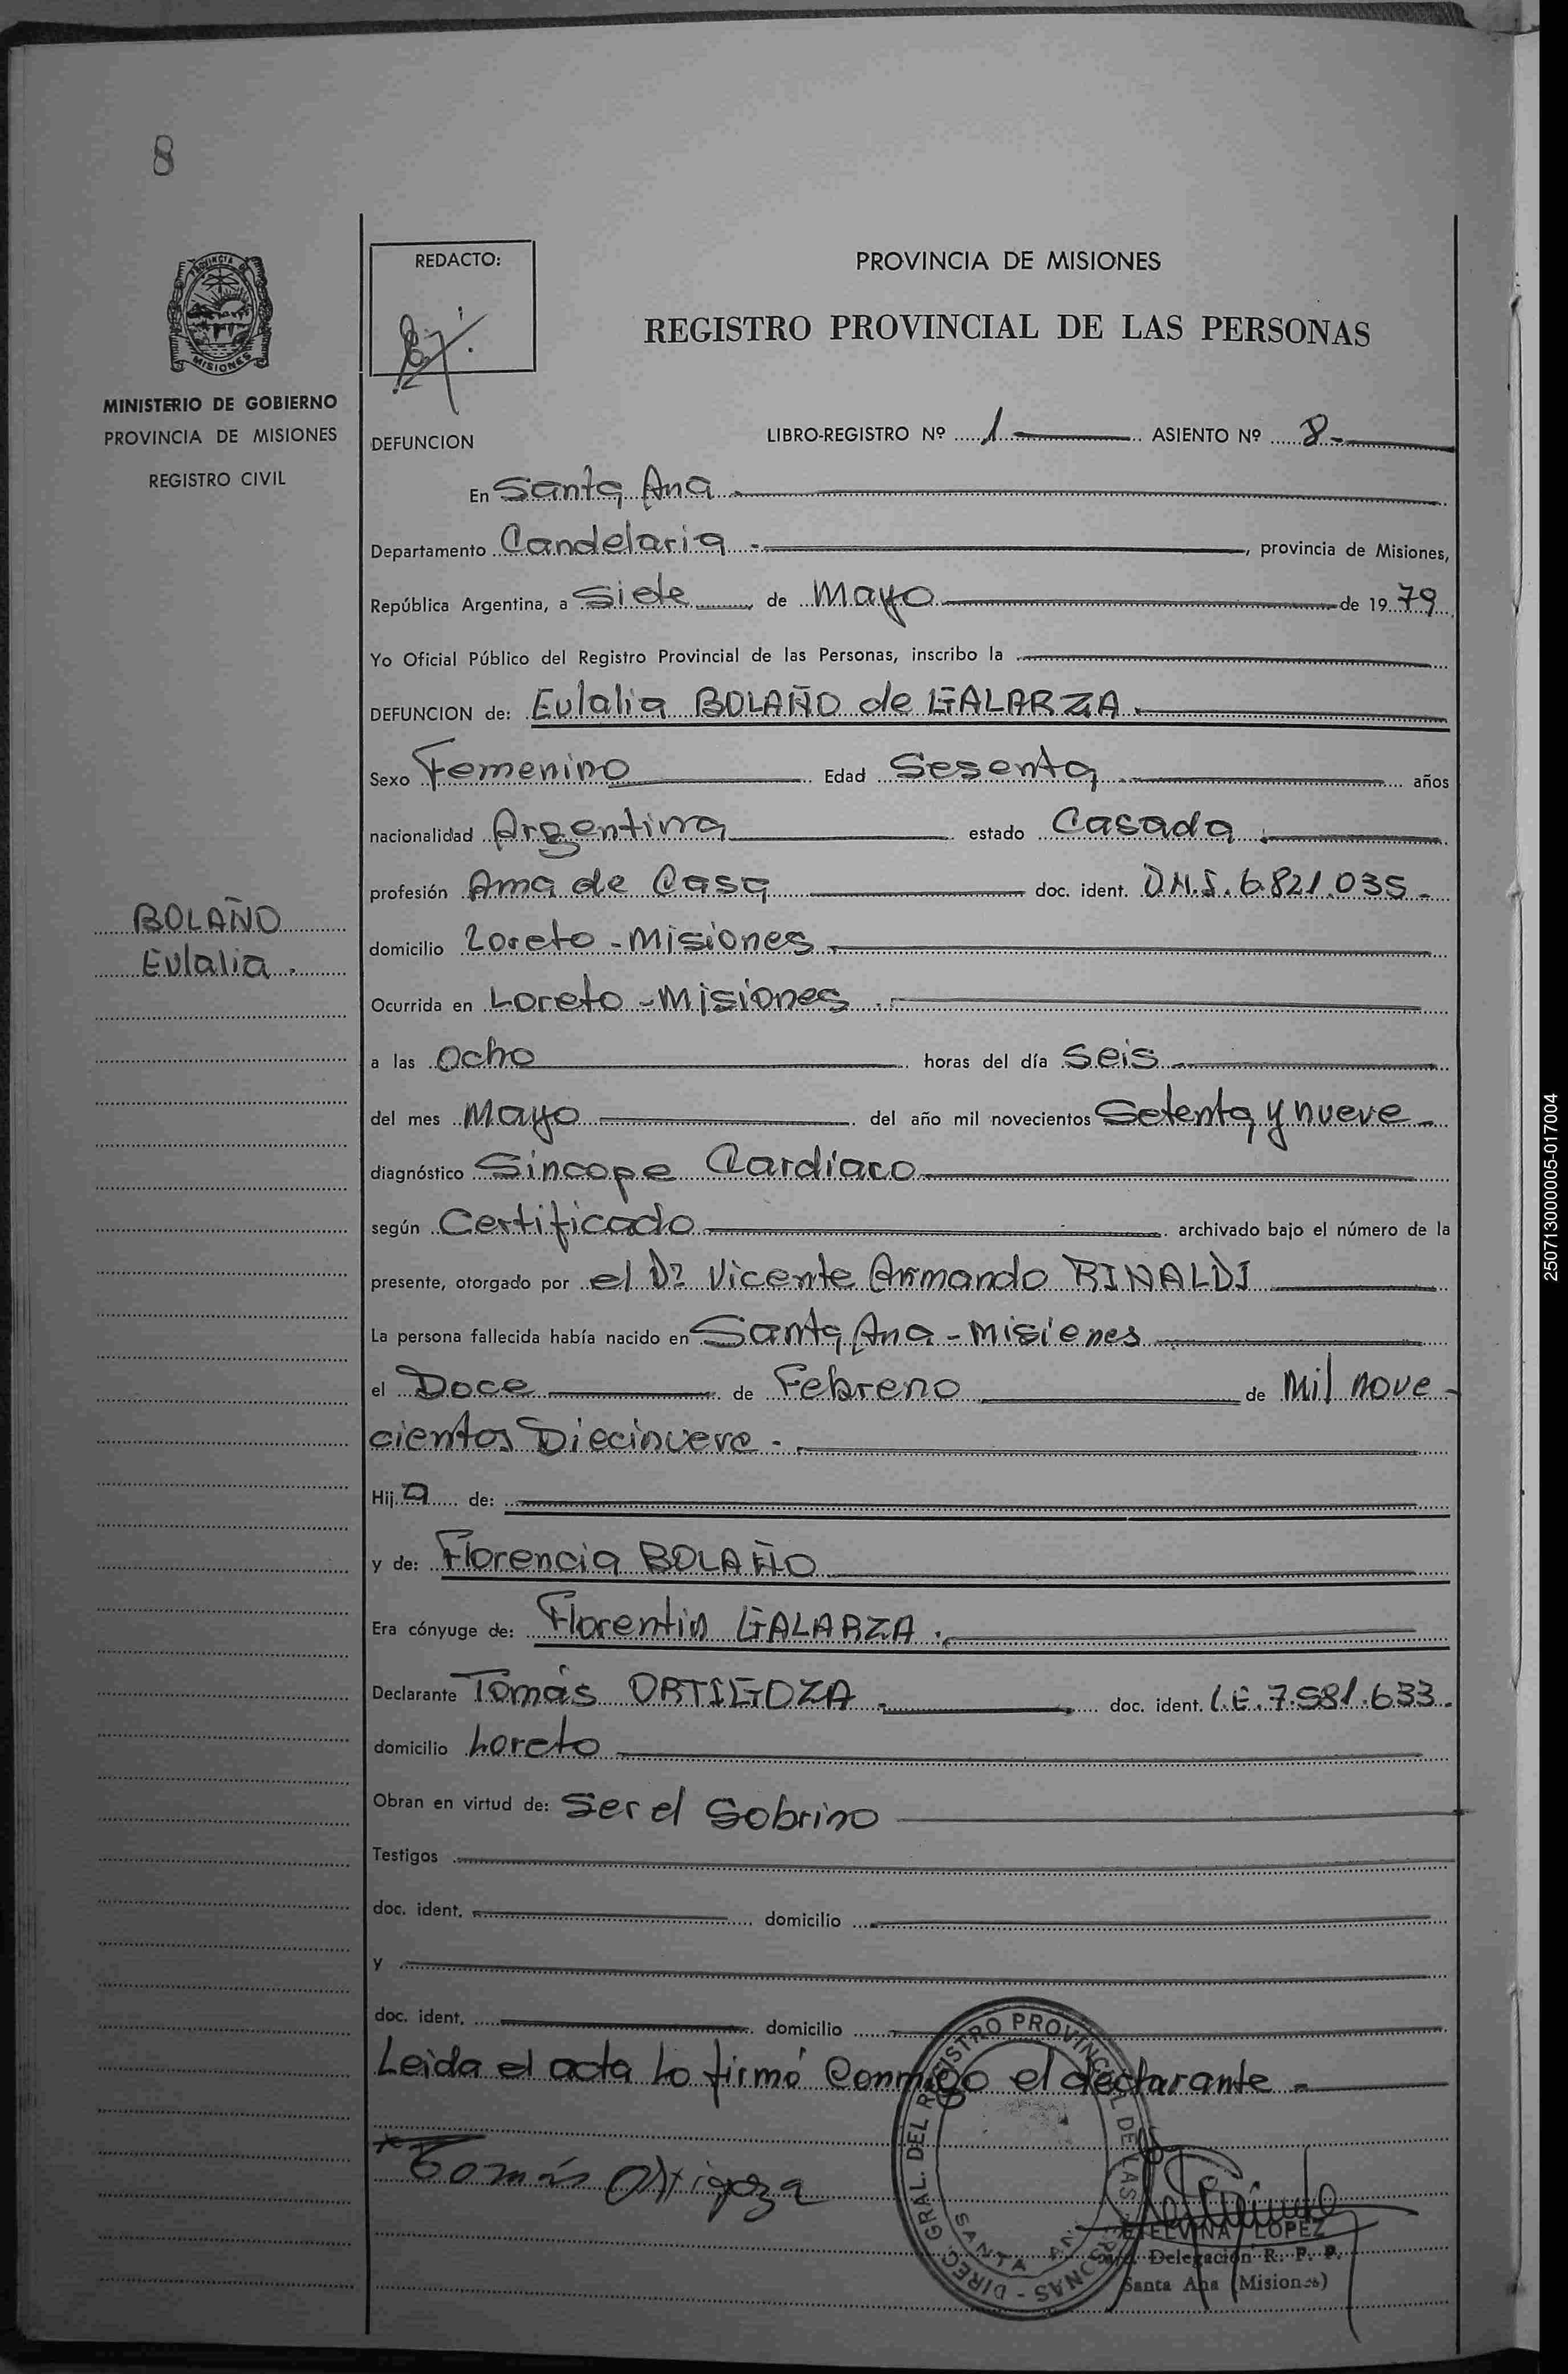 8
PROVINCIA DE
MISIONES
MINISTERIO DE GOBIERNO
PROVINCIA DE MISIONES
REGISTRO CIVIL
BOLAÑO
Eulalia.
REDACTO:
PROVINCIA DE MISIONES
REGISTRO PROVINCIAL DE LAS PERSONAS
DEFUNCION LIBRO-REGISTRO Nº 1 ASIENTO Nº 8-
En Santa Ana
Departamento Candelaria-, provincia de Misiones,
República Argentina, a Siete de Mayo de 1979
Yo Oficial Público del Registro Provincial de las Personas, inscribo la
DEFUNCION de: Eulalia BOLAÑO de GALARZA.
Sexo Femenino Edad Sesenta años
nacionalidad Argentina estado Casada
profesión Ama de Casa doc. ident. D.N.I. 6.821.035-
domicilio Loreto-Misiones
Ocurrida en Loreto-Misiones
a las Ocho horas del día Seis
del mes Mayo del año mil novecientos Setenta y nueve-
diagnóstico Sincope Cardíaco
según Certificado archivado bajo el número de la
presente, otorgado por el Dr Vicente Armando RINALDI
La persona fallecida había nacido en Santa Ana-Misiones
el Doce de Febrero de Mil nove-
cientos Diecinueve-
Hija de:
y de: Florencia BOLAÑO
Era cónyuge de: Florentin GALARZA.
Declarante Tomás ORTIGOZA. doc. ident. L.E. 7.581.633.
domicilio Loreto
Obran en virtud de: Ser el Sobrino
Testigos
doc. ident. domicilio
y
doc. ident. domicilio
Leida el acta Lo firmó Conmigo el declarante-
Tomás Ortigoza
DIREC. GRAL. DEL REGISTRO PROVINCIAL DE LAS PERSONAS -
SANTA ANA
ETELVINA LOPEZ
Delegación R. P. P.
Santa Ana (Misiones)
250713000005-017004